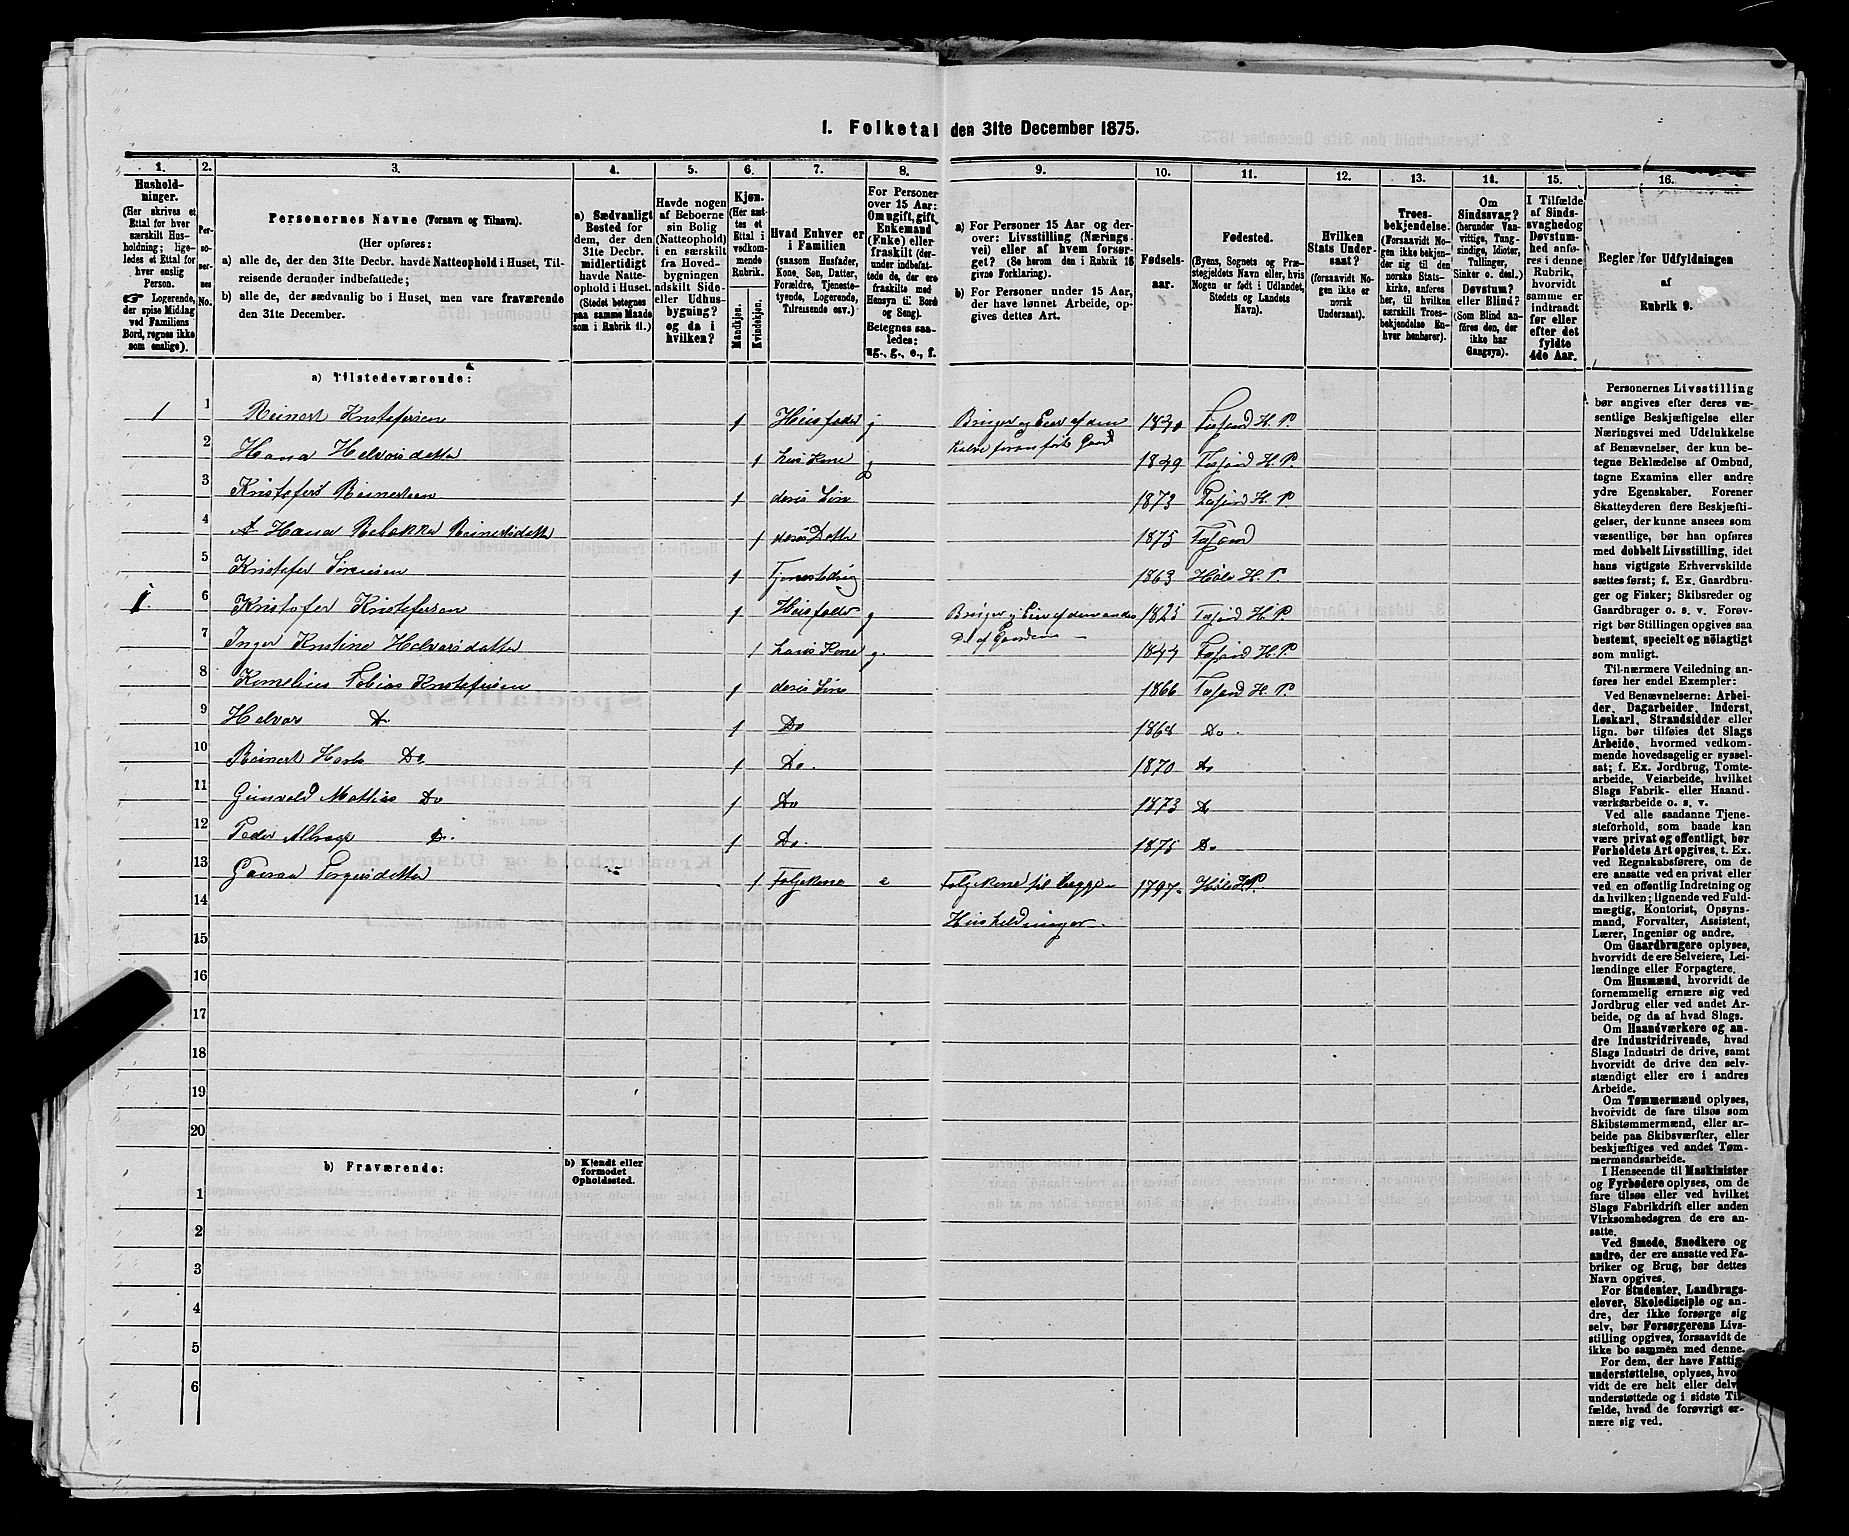 1. Folketal den 31te December 1875.
1. 2. 3. 4. 5. 6. 7. 8. 9. 10. 11. 12. 13. 14. 15. 16.
Husholdninger.
(Her skrives et
Ettal for hver
særskilt Husholdning;
ligeledes et Ettal for
hver enslig
Person.
Logerende,
der spise Middag
ved Familiens
Bord, regnes ikke
som enslige).
Personernes No.
Personernes Navne (Fornavn og Tilnavn).
(Her opføres:
a) alle de, der den 31te Decbr. havde Natteophold i Huset, Tilreisende derunder indbefattede;
b) alle de, der sædvanlig bo i Huset, men vare fraværende
den 31te December.
a) Sædvanligt
Bosted for
dem, der den
31te Decbr.
midlertidigt
havde Natteophold i Huset.
(Stedet betegnes
paa samme Maade
som i Rubrik 11.)
Havde nogen
af Beboerne
sin Bolig
(Natteophold)
i en særskilt
fra Hovedbygningen
adskilt Side-
eller Udhusbygning?
og da i
hvilken?
Kjøn.
(Her sættes et
Ettal i
vedkommende
Rubrik.
Mandkjøn.
Kvindekjøn.
Hvad Enhver er
i Familien
(saasom Husfader,
Kone, Søn, Datter,
Forældre, Tjenestetyende, Logerende,
Tilreisende osv.)
For Personer
over 15 Aar:
Om ugift, gift,
Enkemand
(Enke) eller
fraskilt (derunder indbefattede de, der ere
fraskilte med
Hensyn til Bord
og Seng).
Betegnes saaledes:
ug., g., e., f.
a) For Personer 15 Aar og derover: Livsstilling (Næringsvei) eller af hvem forsørget? (Se herom den i Rubrik 16
givne Forklaring).
b) For Personer under 15 Aar,
der have lønnet Arbeide, opgives dettes Art.
Fødselsaar.
Fødested.
(Byens, Sognets og Præstegjeldets Navn eller, hvis
Nogen er født i Udlandet,
Stedets og Landets
Navn).
Hvilken
Stats Undersaat?
(forsaavidt Nogen ikke er
norsk
Undersaat).
Troesbekjendelse.
(Forsaavidt Nogen ikke bekjender sig til den
norske Statskirke, anføres
her, til hvilken
særskilt Troesbekjendelse Enhver henhører).
Om
Sindssvag?
(herunder Vanvittige, Tungsindige, Idioter,
Tullinger,
Sinker o. desl.)
Døvstum?
eller Blind?
(Som Blind anføres den, der
ikke har
Gangsyn).
I Tilfælde
af Sindssvaghed og
Døvstumhed anføres i denne
Rubrik,
hvorvidt
samme er
indtraadt
før eller
efter det
fyldte
4de Aar.
Regler for Udfyldningen
af
Rubrik 9.
a) Tilstedeværende:
1 1 Reinert Kristofersen 1 Husfader g Bruger og Eier af den 1840 Fosfjord H. P.
2 Hana Helvorsdatter 1 hans Kone g 1849 H. P.
3 Reinertsen 1 deres Søn 1873 H. P.
4 Hana Rebekka Reinertsdatter 1 deres Datter 1875
5 Kristofer 1 1863 Høle H. P.
1. 6 Kristofer Kristofersen 1 Husfader g Bruger og Eier af den anden 1825 H. P.
Del af Gaarden
7 Inger Kristine Helvorsdatter 1 hans Kone g. 1844 H. P.
8 Kornelius Tobias Kristofersen 1 deres Søn 1866 H. P.
9 Helvor Do 1 Do 1868 Do.
10 Reinert Do. 1 Do. 1870 Do
11 Gunvald Mathias Do 1 Do 1873 Do
12 Peder Do. 1 Do. 1875 Do
13 Torgersdatter 1 Folgekone e Folgekone til begge 1797 Høle H. P.
14 Husholdninger.
15
16
17
18
19
20
b) Fraværende:
b) Kjendt eller
formodet
Opholdssted.
1
2
3
4
5
6
Personernes Livsstilling
bør angives efter deres væsentlige Beskjæftigelse eller
Næringsvei med Udelukkelse
af Benævnelser, der kun betegne Beklædelse af Ombud,
tagne Examina eller andre
ydre Egenskaber. Forener
Skatteyderen flere Beskjæftigelser, der kunne ansees som
væsentlige, bør han opføres
med dobbelt Livsstilling, idet
hans vigtigste Erhvervskilde
sættes først; f. Ex. Gaardbruger og Fisker; Skibsreder og
Gaardbruger o. s. v. Forøvrigt bør Stillingen opgives saa
bestemt, specielt og nøiagtigt
som muligt.
Til nærmere Veiledning anføres her endel Exempler:
Ved Benævnelserne: Arbeider, Dagarbeider, Inderst,
Løskarl, Strandsidder eller
lign. bør tilføies det Slags
Arbeide, hvormed vedkommende hovedsagelig er sysselsat; f. Ex. Jordbrug, Tomtearbeide, Veiarbeide, hvilket
Slags Fabrik- eller Haandværksarbeide o. s. v.
Ved alle saadanne Tjenesteforhold, som baade kan
være privat og offentligt, bør
Forholdets Art opgives, t. Ex.
ved Regnskabsførere, om de
ere ansatte ved en privat eller
ved en offentlig Indretning og
da hvilken; lignende ved Fuldmægtig, Kontorist, Opsynsmand, Forvalter, Assistent,
Lærer, Ingeniør og andre.
Om Gaardbrugere oplyses,
hvorvidt de ere Selveiere, Leilændinge eller Forpagtere.
Om Husmænd, hvorvidt de
fornemmelig ernære sig ved
Jordbrug eller ved andet Arbeide, og da af hvad Slags.
Om Haandværkere og andre Industridrivende, hvad
Slags Industri de drive, samt
hvorvidt de drive den selvstændigt eller ere i andres
Arbeide.
Om Tømmermænd oplyses,
hvorvidt de fare tilsøs som
Skibstømmermænd, eller arbeide paa Skibsværfter, eller
beskjæftiges ved andet Tømmermandsarbeide.
I Henseende til Maskinister
og Fyrbødere oplyses, om de
fare tilsøs eller ved hvilket
Slags Fabrikdrift eller anden
Virksomhedsgren de ere ansatte.
Ved Smede, Snedkere og
andre, der ere ansatte ved Fabriker og Brug, bør dettes
Navn opgives.
For Studenter, Landbrugselever, Skoledisciple og andre, der ikke forsørge sig
selv, bør Forsørgerens Livsstilling opgives, forsaavidt de
ikke bo sammen med denne.
For dem, der have Fattigunderstøttelse, oplyses, hvorvidt de ere helt eller delvis
understøttede og i sidste Tilfælde, hvad de forøvrigt ernære sig ved.